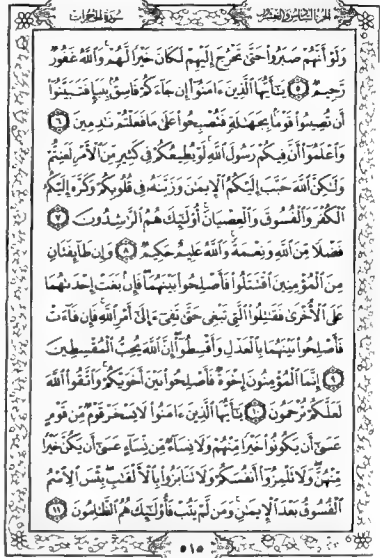 الجزء السادس والعشرون
سورة الحجرات
وَلَوْ أَنَّهُمْ صَبَرُوا۟ حَتَّىٰ تَخْرُجَ إِلَيْهِمْ لَكَانَ خَيْرًا لَّهُمْ ۚ وَٱللَّهُ غَفُورٌ
رَّحِيمٌ ٥ يَـٰٓأَيُّهَا ٱلَّذِينَ ءَامَنُوٓا۟ إِن جَآءَكُمْ فَاسِقٌۢ بِنَبَإٍ فَتَبَيَّنُوٓا۟
أَن تُصِيبُوا۟ قَوْمًۢا بِجَهَـٰلَةٍ فَتُصْبِحُوا۟ عَلَىٰ مَا فَعَلْتُمْ نَـٰدِمِينَ ٦
وَٱعْلَمُوٓا۟ أَنَّ فِيكُمْ رَسُولَ ٱللَّهِ ۚ لَوْ يُطِيعُكُمْ فِى كَثِيرٍ مِّنَ ٱلْأَمْرِ لَعَنِتُّمْ
وَلَـٰكِنَّ ٱللَّهَ حَبَّبَ إِلَيْكُمُ ٱلْإِيمَـٰنَ وَزَيَّنَهُۥ فِى قُلُوبِكُمْ وَكَرَّهَ إِلَيْكُمُ
ٱلْكُفْرَ وَٱلْفُسُوقَ وَٱلْعِصْيَانَ ۚ أُو۟لَـٰٓئِكَ هُمُ ٱلرَّٰشِدُونَ ٧
فَضْلًا مِّنَ ٱللَّهِ وَنِعْمَةً ۚ وَٱللَّهُ عَلِيمٌ حَكِيمٌ ٨ وَإِن طَآئِفَتَانِ
مِنَ ٱلْمُؤْمِنِينَ ٱقْتَتَلُوا۟ فَأَصْلِحُوا۟ بَيْنَهُمَا ۖ فَإِنۢ بَغَتْ إِحْدَىٰهُمَا
عَلَى ٱلْأُخْرَىٰ فَقَـٰتِلُوا۟ ٱلَّتِى تَبْغِى حَتَّىٰ تَفِىٓءَ إِلَىٰٓ أَمْرِ ٱللَّهِ ۚ فَإِن فَآءَتْ
فَأَصْلِحُوا۟ بَيْنَهُمَا بِٱلْعَدْلِ وَأَقْسِطُوٓا۟ ۖ إِنَّ ٱللَّهَ يُحِبُّ ٱلْمُقْسِطِينَ
٩ إِنَّمَا ٱلْمُؤْمِنُونَ إِخْوَةٌ فَأَصْلِحُوا۟ بَيْنَ أَخَوَيْكُمْ ۚ وَٱتَّقُوا۟ ٱللَّهَ
لَعَلَّكُمْ تُرْحَمُونَ ١٠ يَـٰٓأَيُّهَا ٱلَّذِينَ ءَامَنُوا۟ لَا يَسْخَرْ قَوْمٌ مِّن قَوْمٍ
عَسَىٰٓ أَن يَكُونُوا۟ خَيْرًا مِّنْهُمْ وَلَا نِسَآءٌ مِّن نِّسَآءٍ عَسَىٰٓ أَن يَكُنَّ خَيْرًا
مِّنْهُنَّ ۖ وَلَا تَلْمِزُوٓا۟ أَنفُسَكُمْ وَلَا تَنَابَزُوا۟ بِٱلْأَلْقَـٰبِ ۖ بِئْسَ ٱلِٱسْمُ
ٱلْفُسُوقُ بَعْدَ ٱلْإِيمَـٰنِ ۚ وَمَن لَّمْ يَتُبْ فَأُو۟لَـٰٓئِكَ هُمُ ٱلظَّـٰلِمُونَ ١١
٥١٥